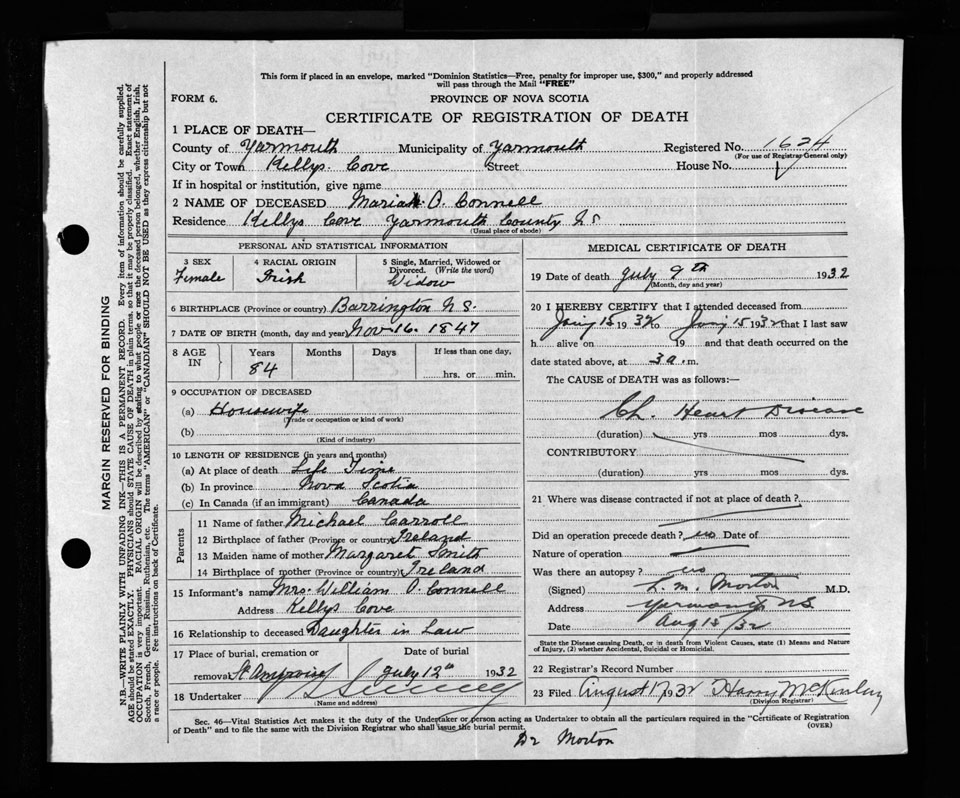 This form if placed in an envelope, marked "Dominion Statistics—Free, penalty for improper use, $300," and properly addressed
will pass through the Mail "FREE"
FORM 6.
PROVINCE OF NOVA SCOTIA
CERTIFICATE OF REGISTRATION OF DEATH
1 PLACE OF DEATH—
County of Yarmouth Municipality of Yarmouth Registered No. 1624
(For use of Registrar General only)
City or Town Kellys Cove Street House No.
If in hospital or institution, give name
2 NAME OF DECEASED Mariah O. Connell
Residence Kellys Cove Yarmouth County N S
(Usual place of abode)
PERSONAL AND STATISTICAL INFORMATION
3 SEX
Female
4 RACIAL ORIGIN
Irish
5 Single, Married, Widowed or
Divorced. (Write the word)
Widow
6 BIRTHPLACE (Province or country) Barrington N S.
7 DATE OF BIRTH (month, day and year) Nov. 16. 1847
8 AGE IN
Years Months Days If less than one day,
84 hrs. or min.
9 OCCUPATION OF DECEASED
(a) Housewife
(Trade or occupation or kind of work)
(b)
(Kind of industry)
10 LENGTH OF RESIDENCE (in years and months)
(a) At place of death Life Time
(b) In province Nova Scotia
(c) In Canada (if an immigrant) Canada
Parents
11 Name of father Michael Carroll
12 Birthplace of father (Province or country) Ireland
13 Maiden name of mother Margaret Smith
14 Birthplace of mother (Province or country) Ireland
15 Informant's name Mrs. William O. Connell
Address Kellys Cove
16 Relationship to deceased Daughter in Law
17 Place of burial, cremation or Date of burial
removal St Ambroise July 12th 1932
18 Undertaker
(Name and address)
MEDICAL CERTIFICATE OF DEATH
19 Date of death July 9th 1932
(Month, day and year)
20 I HEREBY CERTIFY that I attended deceased from
15 1932 to 15 1932 that I last saw
h alive on 19 and that death occurred on the
date stated above, at 3 a. m.
The CAUSE of DEATH was as follows:—
Ch. Heart Disease
(duration) yrs mos dys.
CONTRIBUTORY
(duration) yrs mos dys.
21 Where was disease contracted if not at place of death?
Did an operation precede death? no Date of
Nature of operation
Was there an autopsy? no
(Signed) L. M. Morton M.D.
Address Yarmouth NS
Date Aug 15/32
State the Disease causing Death, or in death from Violent Causes, state (1) Means and Nature
of Injury, (2) whether Accidental, Suicidal or Homicidal.
22 Registrar's Record Number
23 Filed August 17 1932 Harry McKinlay
(Division Registrar)
Sec. 46—Vital Statistics Act makes it the duty of the Undertaker or person acting as Undertaker to obtain all the particulars required in the "Certificate of Registration
of Death" and to file the same with the Division Registrar who shall issue the burial permit. (OVER)
Dr Morton
MARGIN RESERVED FOR BINDING
N.B.—WRITE PLAINLY WITH UNFADING INK—THIS IS A PERMANENT RECORD. Every item of information should be carefully supplied.
AGE should be stated EXACTLY. PHYSICIANS should STATE CAUSE OF DEATH in plain terms, so that it may be properly classified. Exact statement of
OCCUPATION is very important. RACIAL ORIGIN will be described by stating to what people or race the deceased person belonged, whether English, Irish,
Scotch, French, German, Russian, Ruthenian, etc. The terms "AMERICAN" or "CANADIAN" SHOULD NOT BE USED as they express citizenship but not
a race or people. See instructions on back of Certificate.